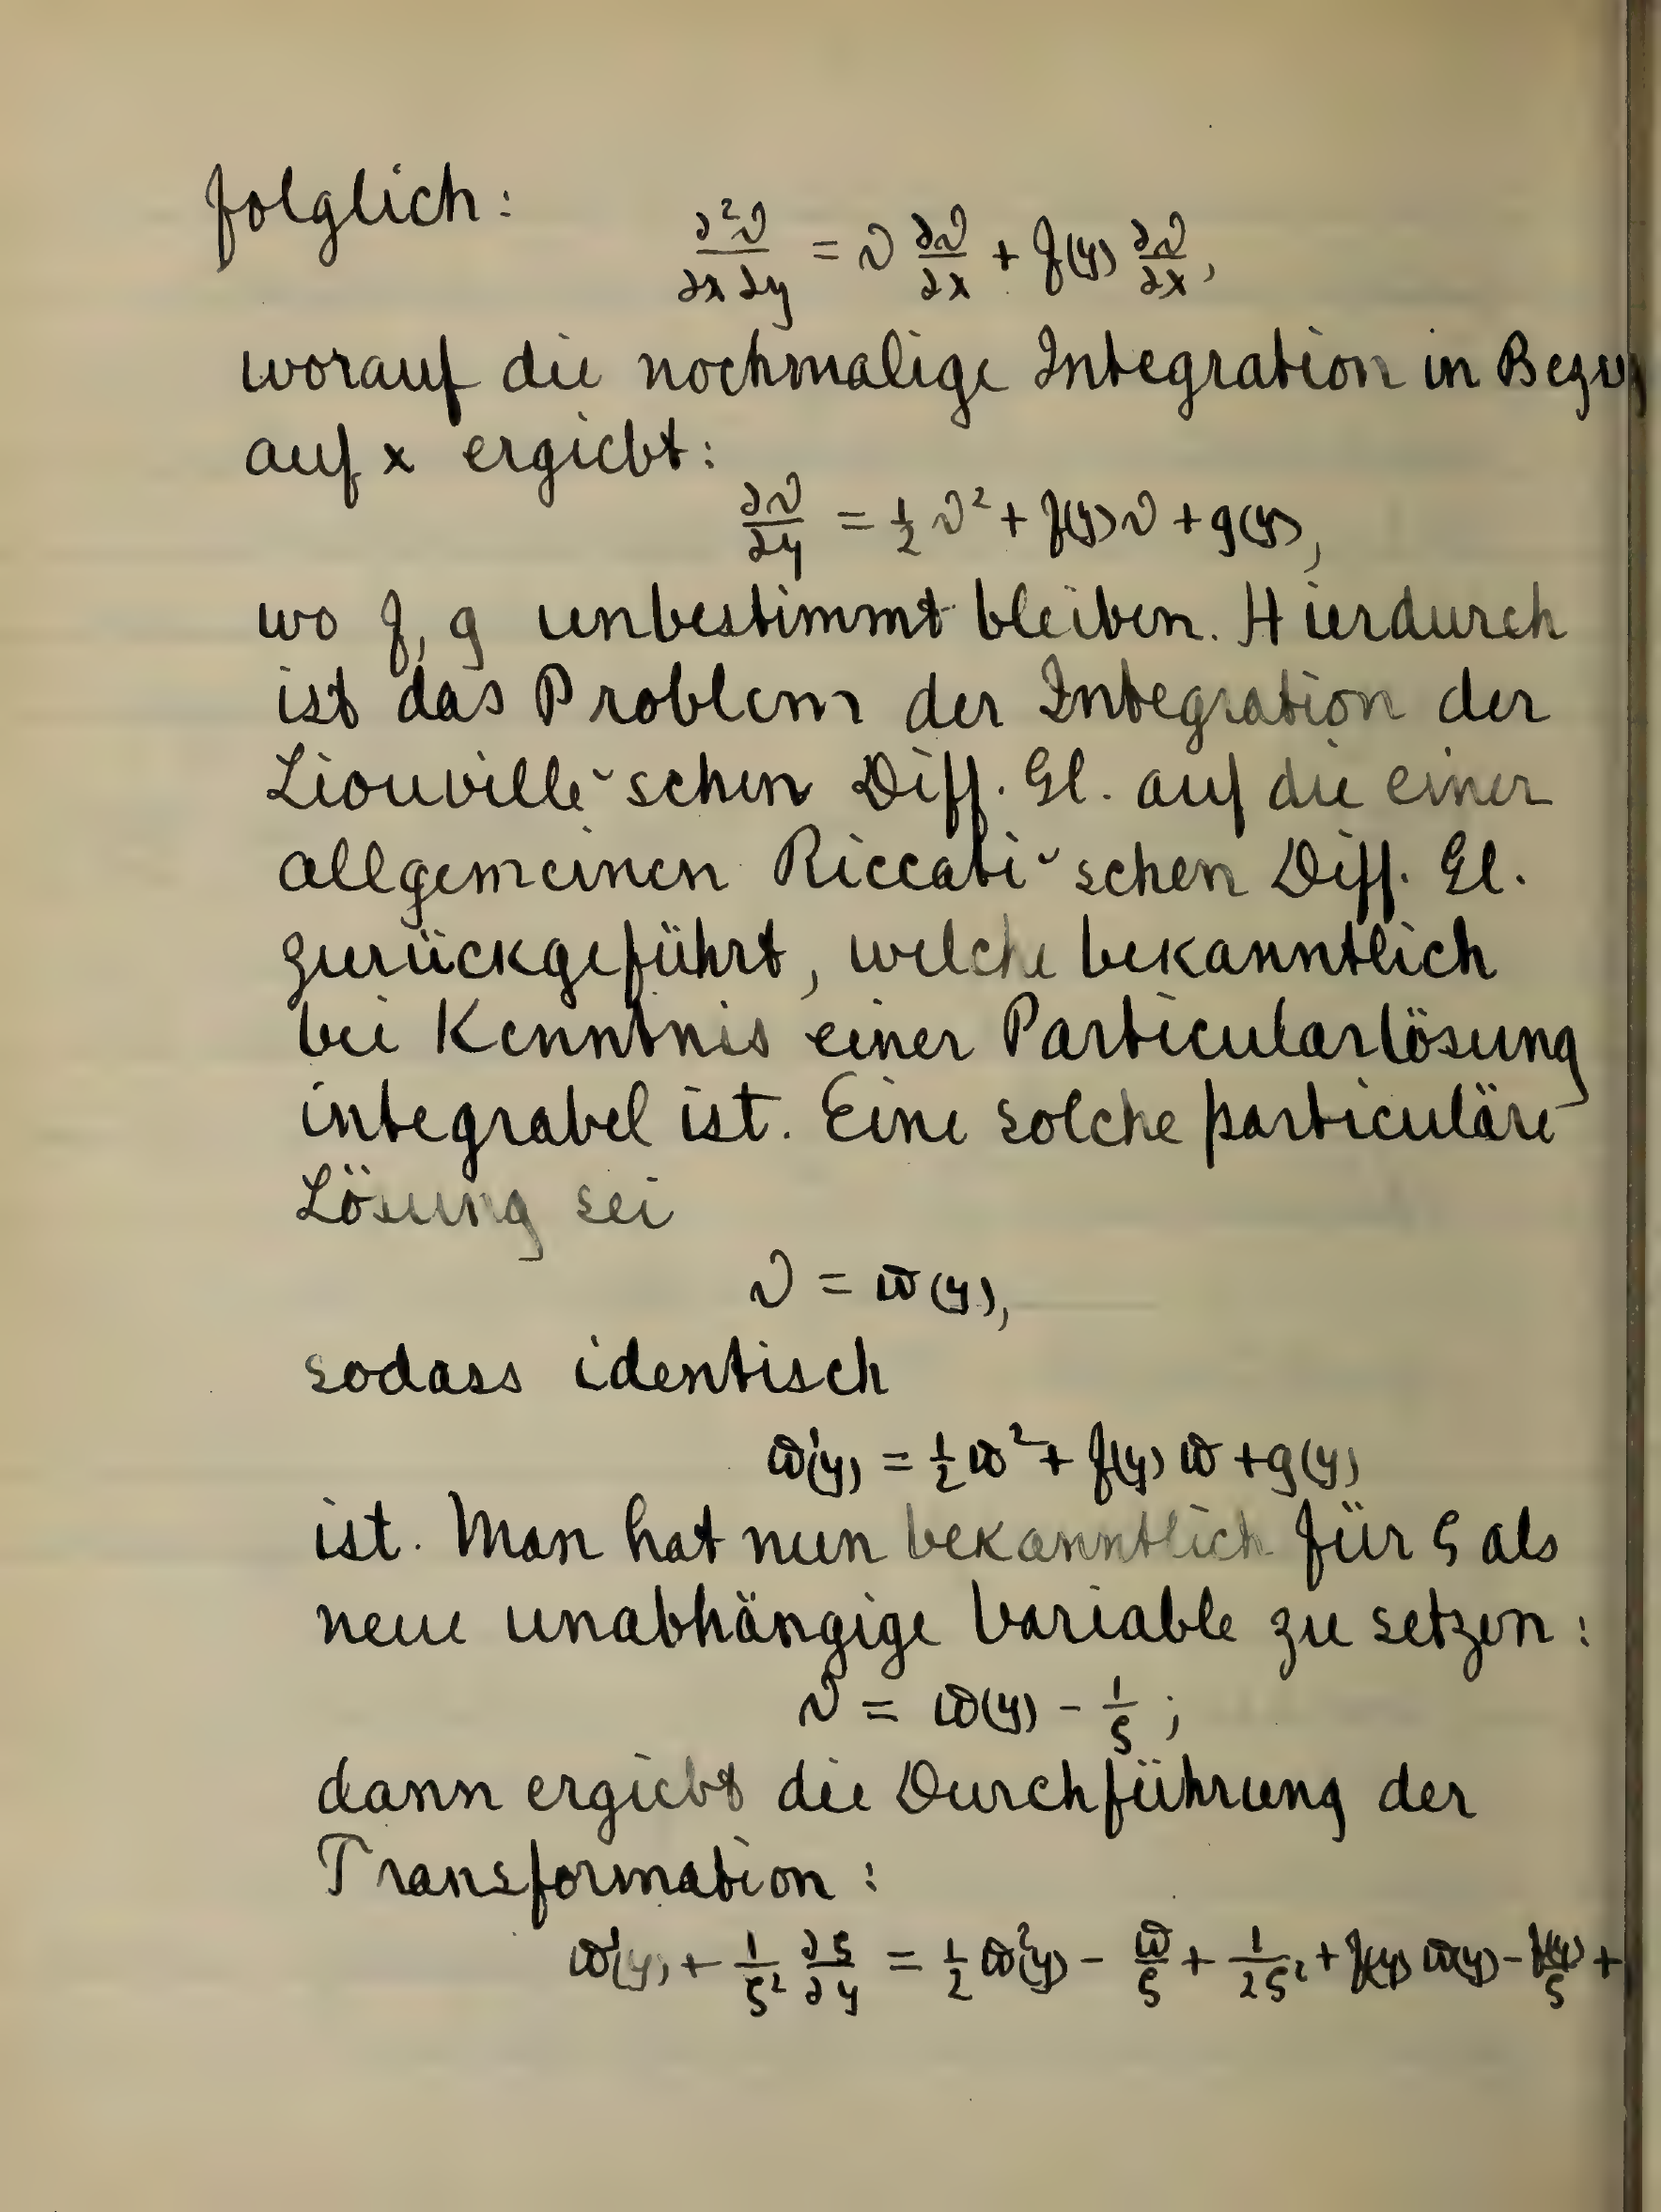 folglich:
∂²v/∂x∂y = v ∂v/∂x + f(y) ∂v/∂x,
worauf die nochmalige Integration in Bezug
auf x ergiebt:
∂v/∂y = ½ v² + f(y)v + g(y),
wo f, g unbestimmt bleiben. Hierdurch
ist das Problem der Integration der
Liouville'schen Diff. Gl. auf die einer
allgemeinen Riccati'schen Diff. Gl.
zurückgeführt, welche bekanntlich
bei Kenntnis einer Particularlösung
integrabel ist. Eine solche particuläre
Lösung sei
v = ω(y),
sodass identisch
ω'(y) = ½ ω² + f(y) ω + g(y)
ist. Man hat nun bekanntlich für ς als
neue unabhängige Variable zu setzen:
v = ω(y) - 1/ς;
dann ergiebt die Durchführung der
Transformation:
ω'(y) + 1/ς² ∂ς/∂y = ½ ω²(y) - ω/ς + 1/2ς² + f(y) ω(y) - f(y)/ς +